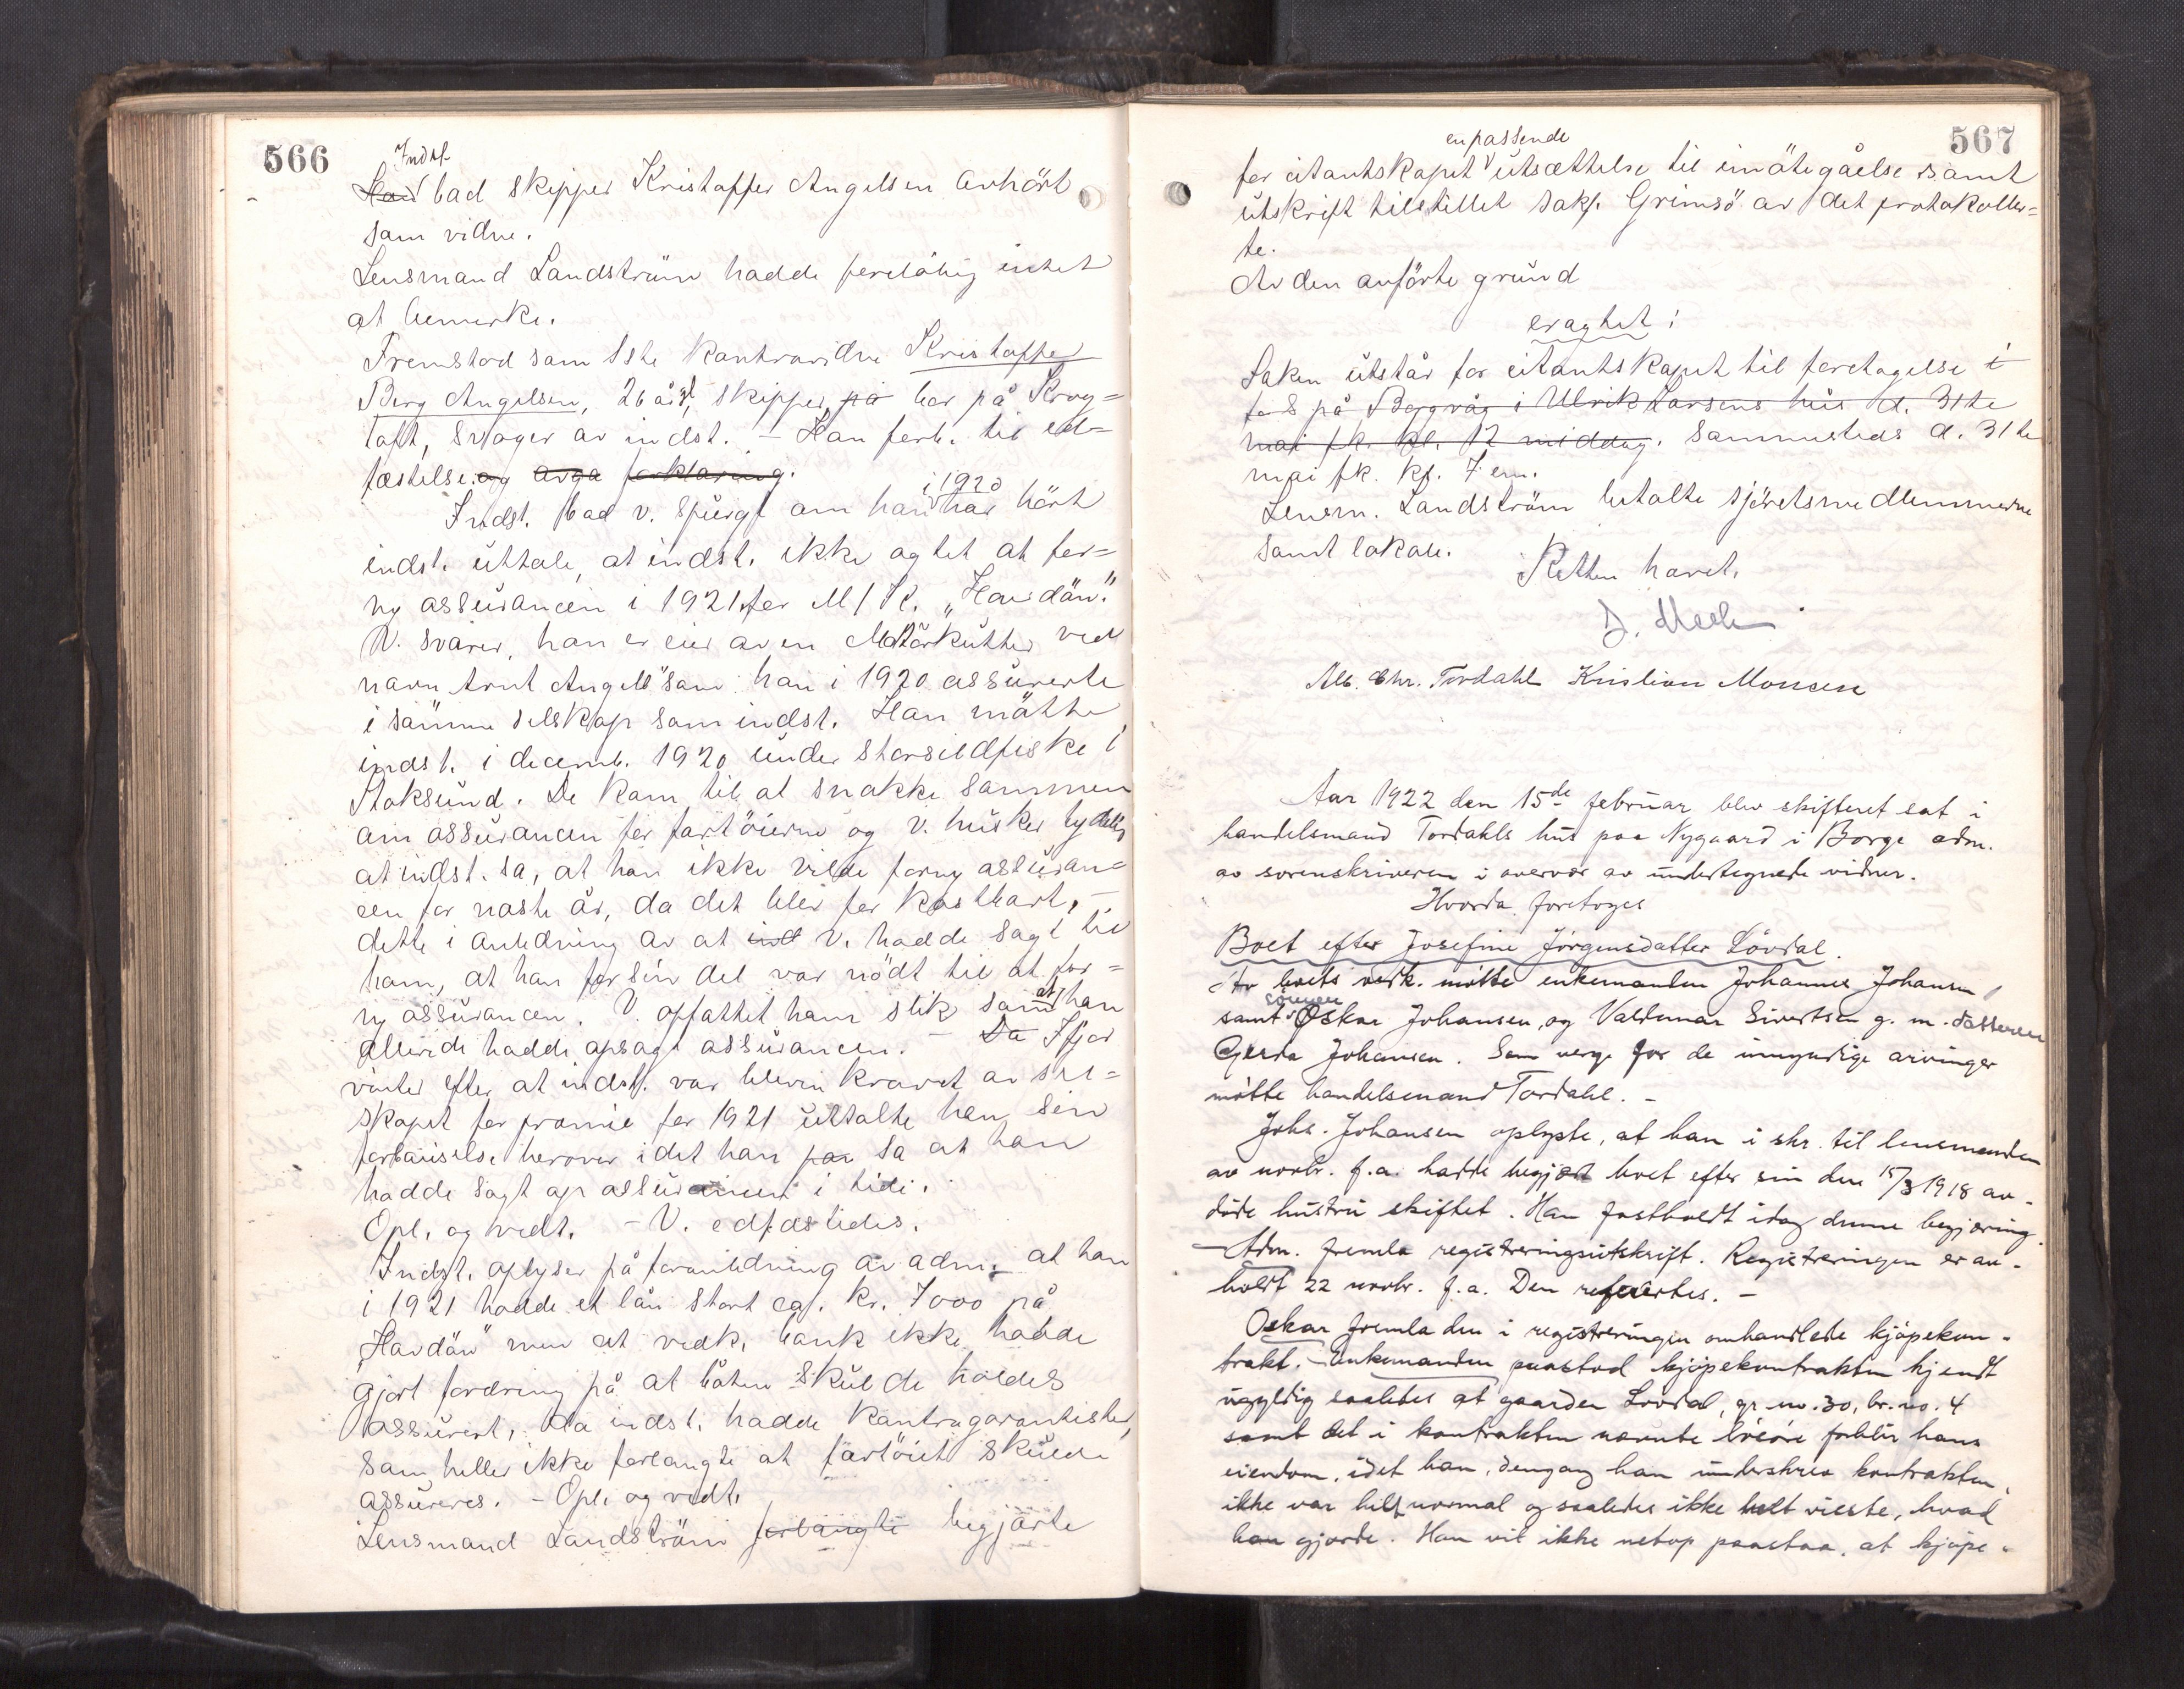 566
Indst.
Han bad skipper Kristoffer Angelsen avhört
som vidne.
Lensmand Landström hadde foreløbig intet
at bemerke.
Fremstod som 1ste kontravidne Kristoffer
Berg Angelsen, 26 år gl, skipper, på bor på Krog=
toft, svoger av indst. – Han forb. til ed=
fæstelse. og avga forklaring.
i 1920
Indst. bad v. spurgt om han har hört
indst. uttale, at indst. ikke agtet at for=
ny assurancen i 1921 for M/K. "Havdön."
V. svarer, han er eier av en Motorkutter ved
navn Arnt Angell" som han i 1920 assurerte
i samme selskap som indst. Han mötte
indst. i decemb. 1920 under storsildfiske i
Stoksund. De kom til at snakke sammen
om assurancen for fartöierne og v. husker tydelig
at indst. sa, at han ikke vilde forny assuran=
cen for næste år, da det blev for kostbart, –
dette i anledning av at indst v. hadde sagt til
ham, at han for sin del var nödt til at for=
ny assurancen. V. opfattet ham slik som at han
allerede hadde opsagt assurancen. – Da Ifjor
vinter efter at indst. var bleven krævet av sel=
skapet for præmie for 1921 uttalte han sin
forbauselse herover idet han paa sa at han
hadde sagt op assurancen i tide.
Opl. og vedt. – V. edfæstedes.
Indst. oplyser på foranledning av adm. at han
i 1921 hadde et lån stort ca. kr. 7000 på
"Havdön" men at vedk. bank ikke hadde
gjort fordring på at båten skulde holdes
assurert, da indst. hadde kontragarantister,
som heller ikke forlangte at fartöiet skulde
assureres. – Opl. og vedt.
Lensmand Landström forlangte begjærte
567
en passende
for citantskapet utsættelse til imötegåelse samt
utskrift tilstillet sakf. Grimsö av det protokoller=
te.
Av den anförte grund
eragtet:
Saken utstår for citantskapet til foretagelse i
fos på Borgvåg i Ulrik Larsens hus d. 31te
mai fk. kl. 12 middag. sammesteds d. 31te
mai fk. kl. 7 em.
Lensm. Landström betalte sjöretsmedlemmerne
samt lokale.
Retten hævet.
Alb. Chr. Tordahl Kristian Monsen
Aar 1922 den 15de februar blev skifteret sat i
handelsmand Tordahls hus paa Nygaard i Borge adm.
av sorenskriveren i overvær av undertegnede vidner.
Hvorda foretoges
Boet efter Josefine Jörgensdatter Lövdal.
Av boets vedk. mötte enkemanden Johannes Johansen
sönnen
samt Oskar Johansen, og Valdemar Sivertsen g. m. datteren
Gerda Johansen. Som verge for de umyndige arvinger
mötte handelsmand Tordahl. –
Johs. Johansen oplyste, at han i skr. til lensmanden
av novbr. f.a. hadde begjært boet efter sin den 15/3 1918 av-
döde hustru skiftet. Han fastholdt idag denne begjæring.
– Adm. fremla registreringsutskrift. Registreringen er av-
holdt 22 novbr. f.a. Den refererdes. –
Oskar fremla den i registreringen omhandlede kjöpekon-
trakt. – Enkemanden paastod kjöpekontrakten kjendt
ugyldig saaledes at gaarden Lövdal, gr. no. 30, br. no. 4
samt det i kontrakten nævnte lösöre forblir hans
eiendom, idet han, dengang han underskrev kontrakten,
ikke var helt normal og saaledes ikke helt visste, hvad
han gjorde. Han vil ikke netop paastaa, at kjöpe-